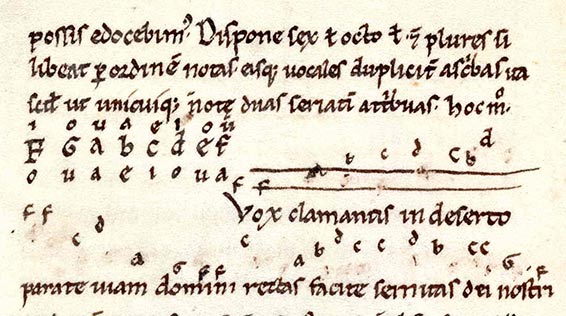 possis edocebim᷒. Dispone sex ł octo ł ⁊ plures si
libeat ꝑ ordinē notas. eisq; uocales dupliciť ascͥbas ita
scił ut unicuiq; notę duas seriatī attͥbuas. hoc mͦ.
i o u a e i o u
F G a b c d e f
o u a e i o u a
F F a b c d c b d
Vox clamantis in deserto
F F c d a G F F c a b d c c d b c c G F
parate uiam domini rectas facite semitas dei nostri